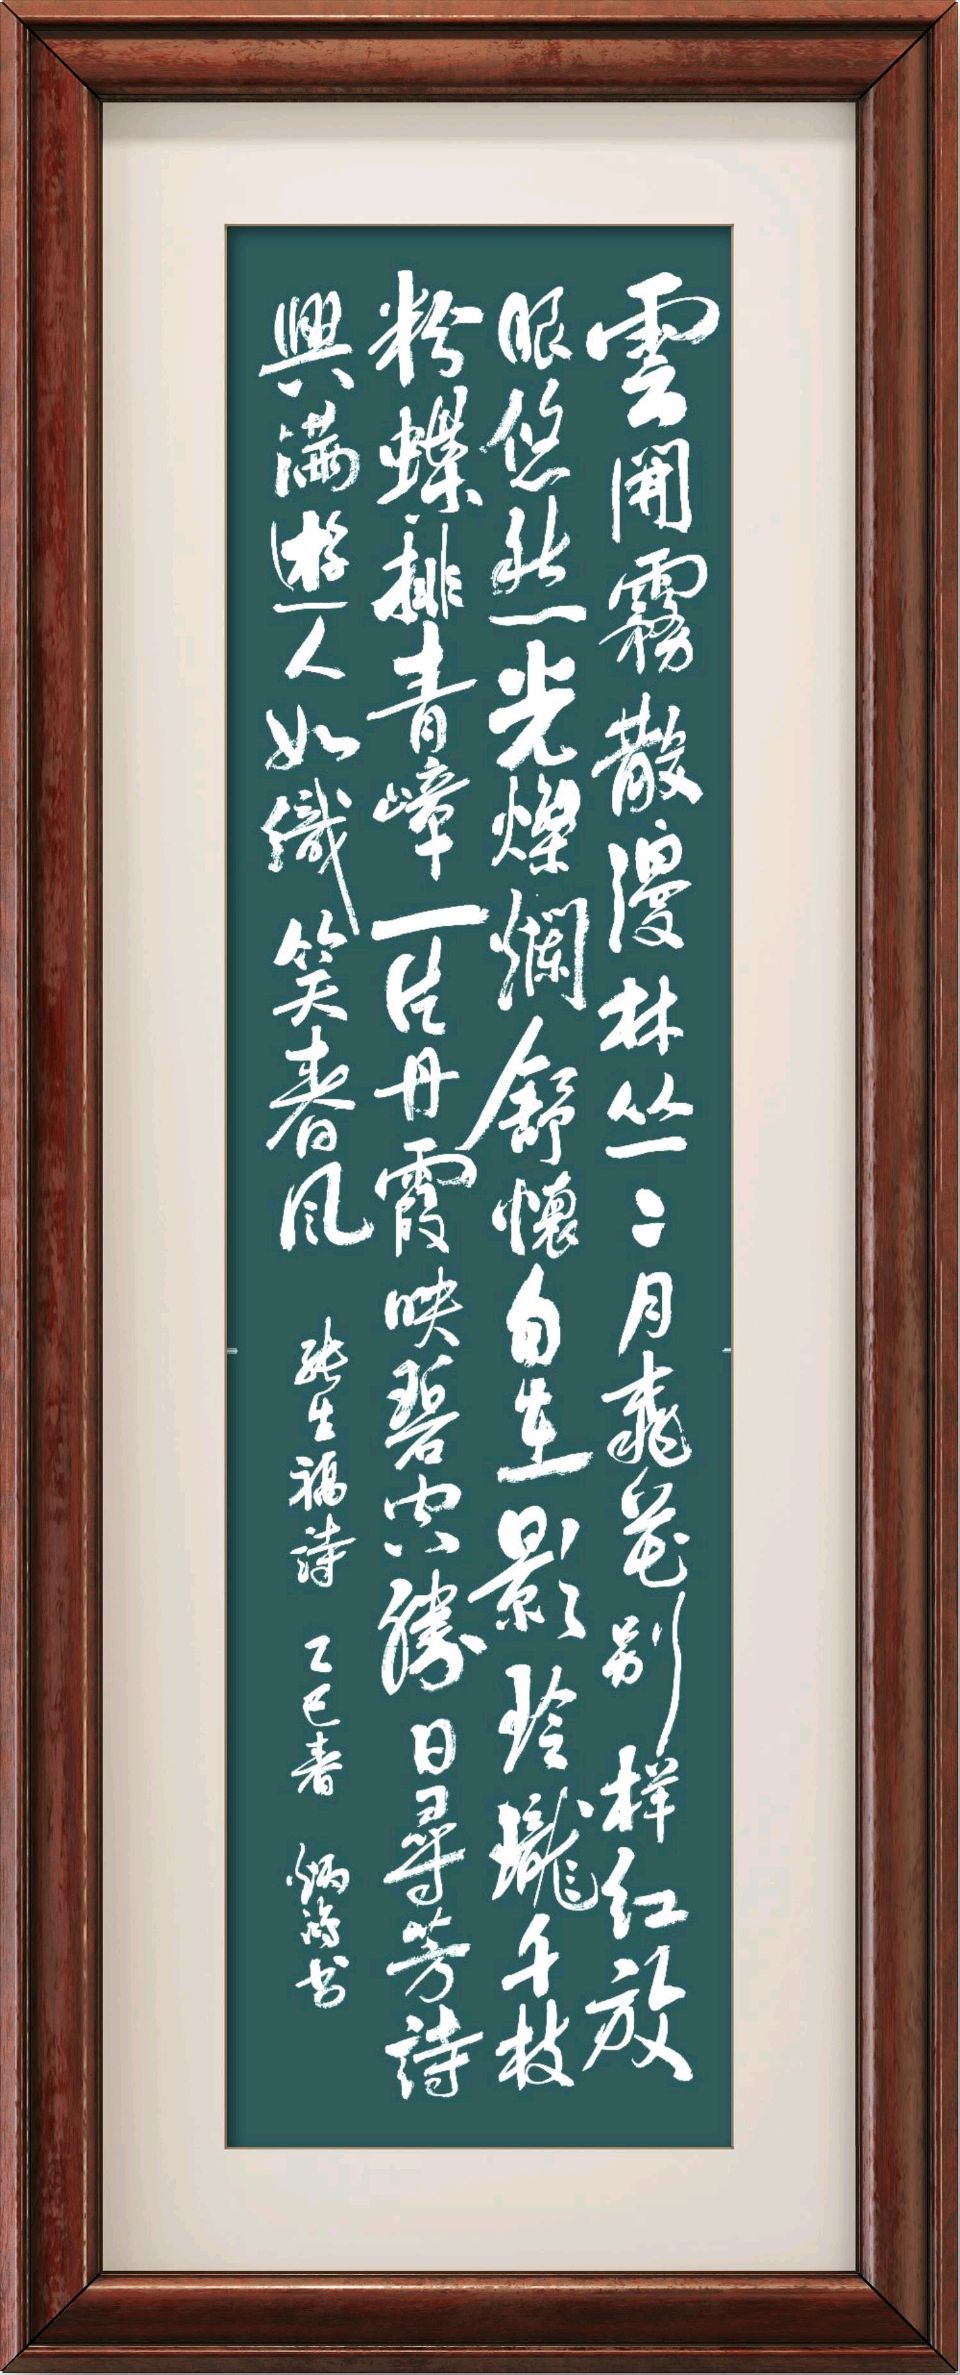 雲開霧散漫林丛二月桃花别样红放
眼悠然光燦爛舒懷自在影玲瓏千枝
粉蝶排青嶂一片丹霞映碧空勝日尋芳詩
興满遊人如織笑春风 張生福詩 乙巳春 炳鸿书